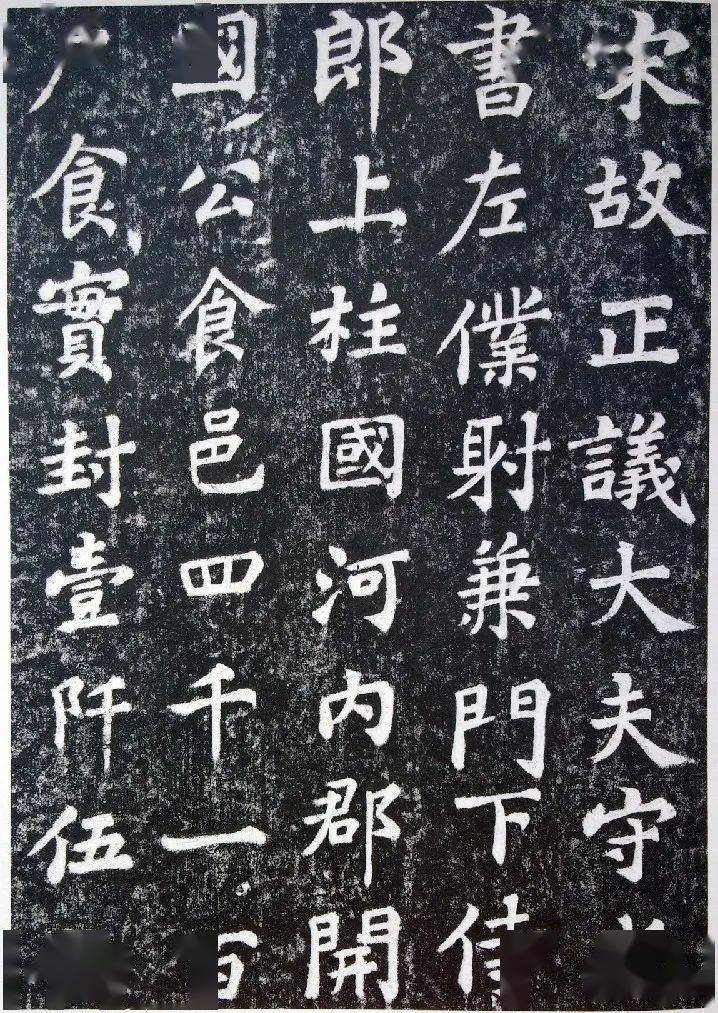 宋故正議大夫守
書左僕射兼門下侍
郎上柱國河內郡開
國公食邑四千一百
食實封壹阡伍